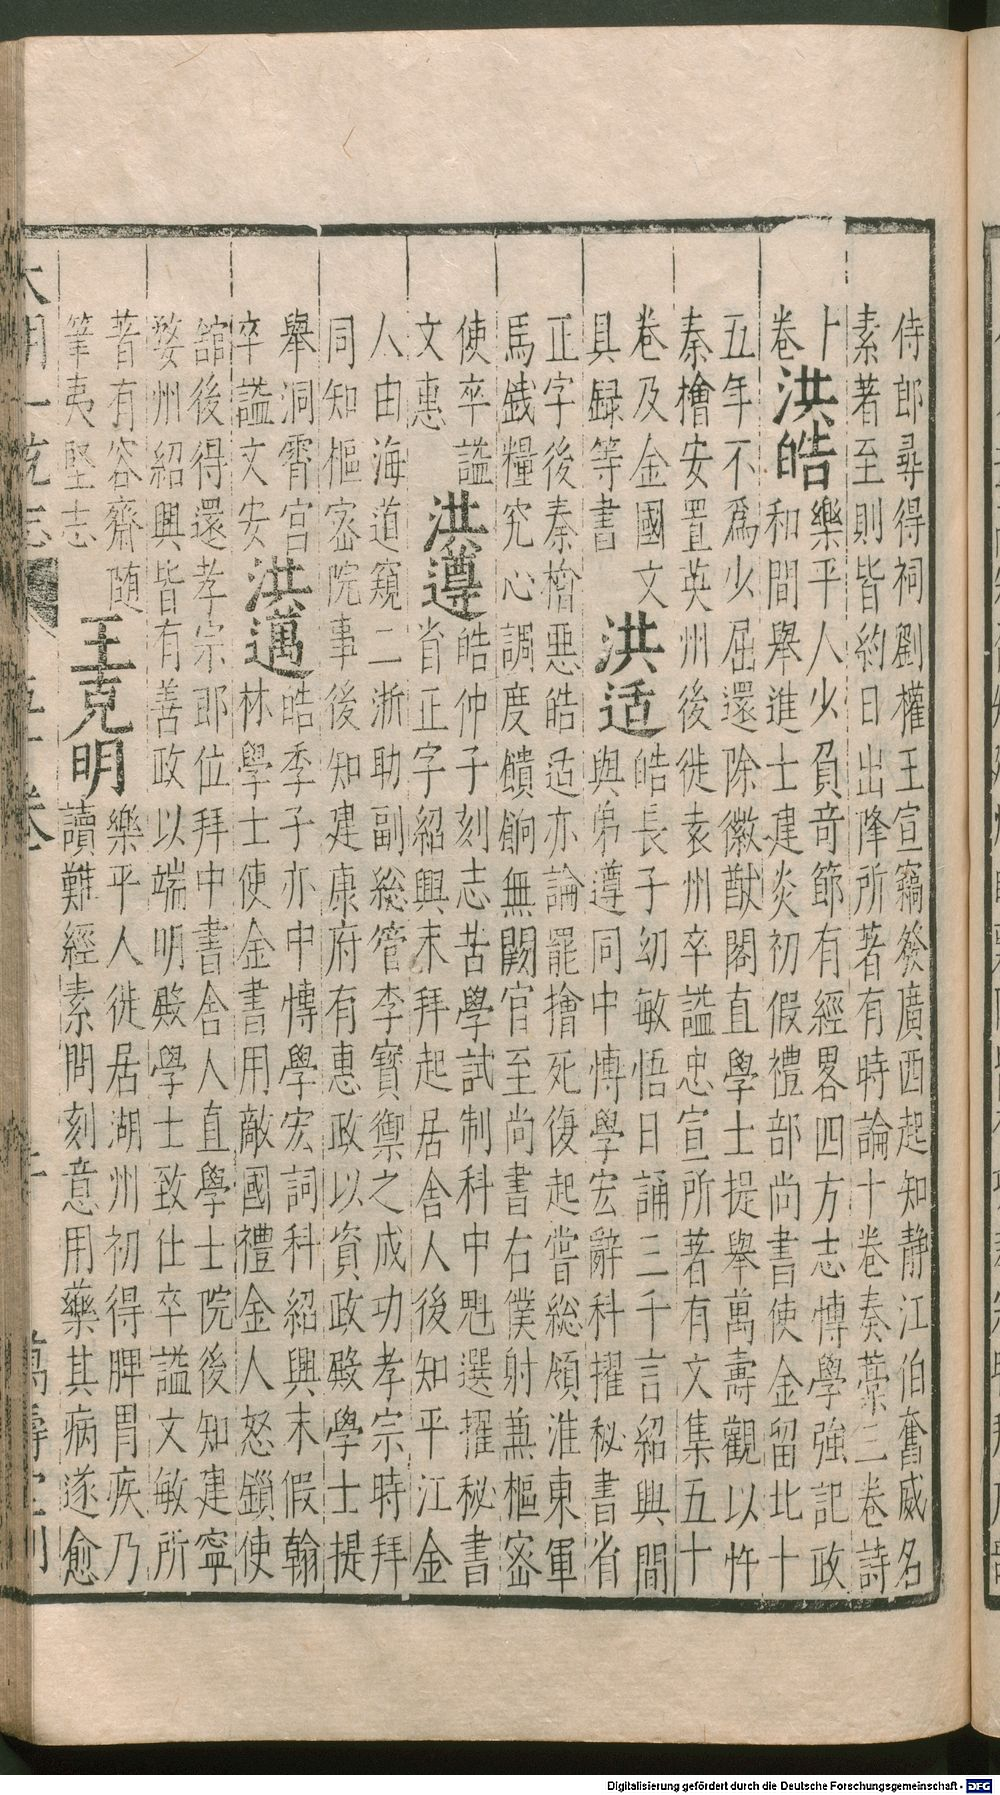 侍郎尋得祠劉權王宣竊發廣西起知静江伯奮威名
素著至則皆約日出降所著有時論十卷奏藁三卷詩
卜
卷
洪皓
樂平人少負竒節有經畧四方志愽學強記政
和間舉進士建炎初假禮部尚書使金留北十
五年不爲少屈還除徽猷閣直學士提舉萬壽觀以忤
秦檜安置英州後徙袁州卒謚忠宣所著有文集五十
卷及金國文
具録等書
洪适
皓長子幼敏悟日誦三千言紹興間
與弟遵同中愽學宏辭科擢秘書省
正字後秦檜惡皓适亦論罷檜死復起嘗総領淮東軍
馬錢糧究心調度饋餉無闕官至尚書右僕射兼樞宻
使卒謚
文惠
洪遵
皓仲子刻志苦學試制科中魁選擢秘書
省正字紹興末拜起居舍人後知平江金
人由海道窺二浙助副総管李寳禦之成功孝宗時拜
同知樞宻院事後知建康府有惠政以資政殿學士提
舉洞霄宮
卒謚文安
洪邁
皓季子亦中愽學宏詞科紹興末假翰
林學士使金書用敵國禮金人怒鎖使
舘後得還孝宗即位拜中書舍人直學士院後知建寧
婺州紹興皆有善政以端明殿學士致仕卒謚文敏所
著有容齋随
筆夷堅志
王克明
樂平人徙居湖州初得脾胃疾乃
讀難經素問刻意用藥其病遂愈
大明一統志
萬壽堂刋
Digitalisierung gefördert durch die Deutsche Forschungsgemeinschaft - DFG